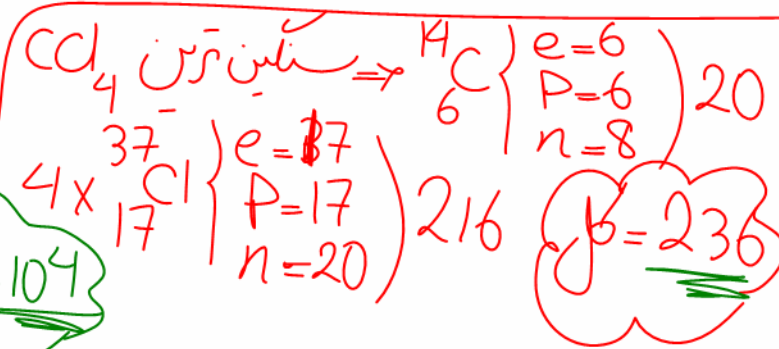 CCl₄ سنگین ترین => ¹⁴₆C { e=6 P=6 n=8 ) 20
4× ³⁷₁₇Cl { e=17 P=17 n=20 ) 216
کل = 236
104